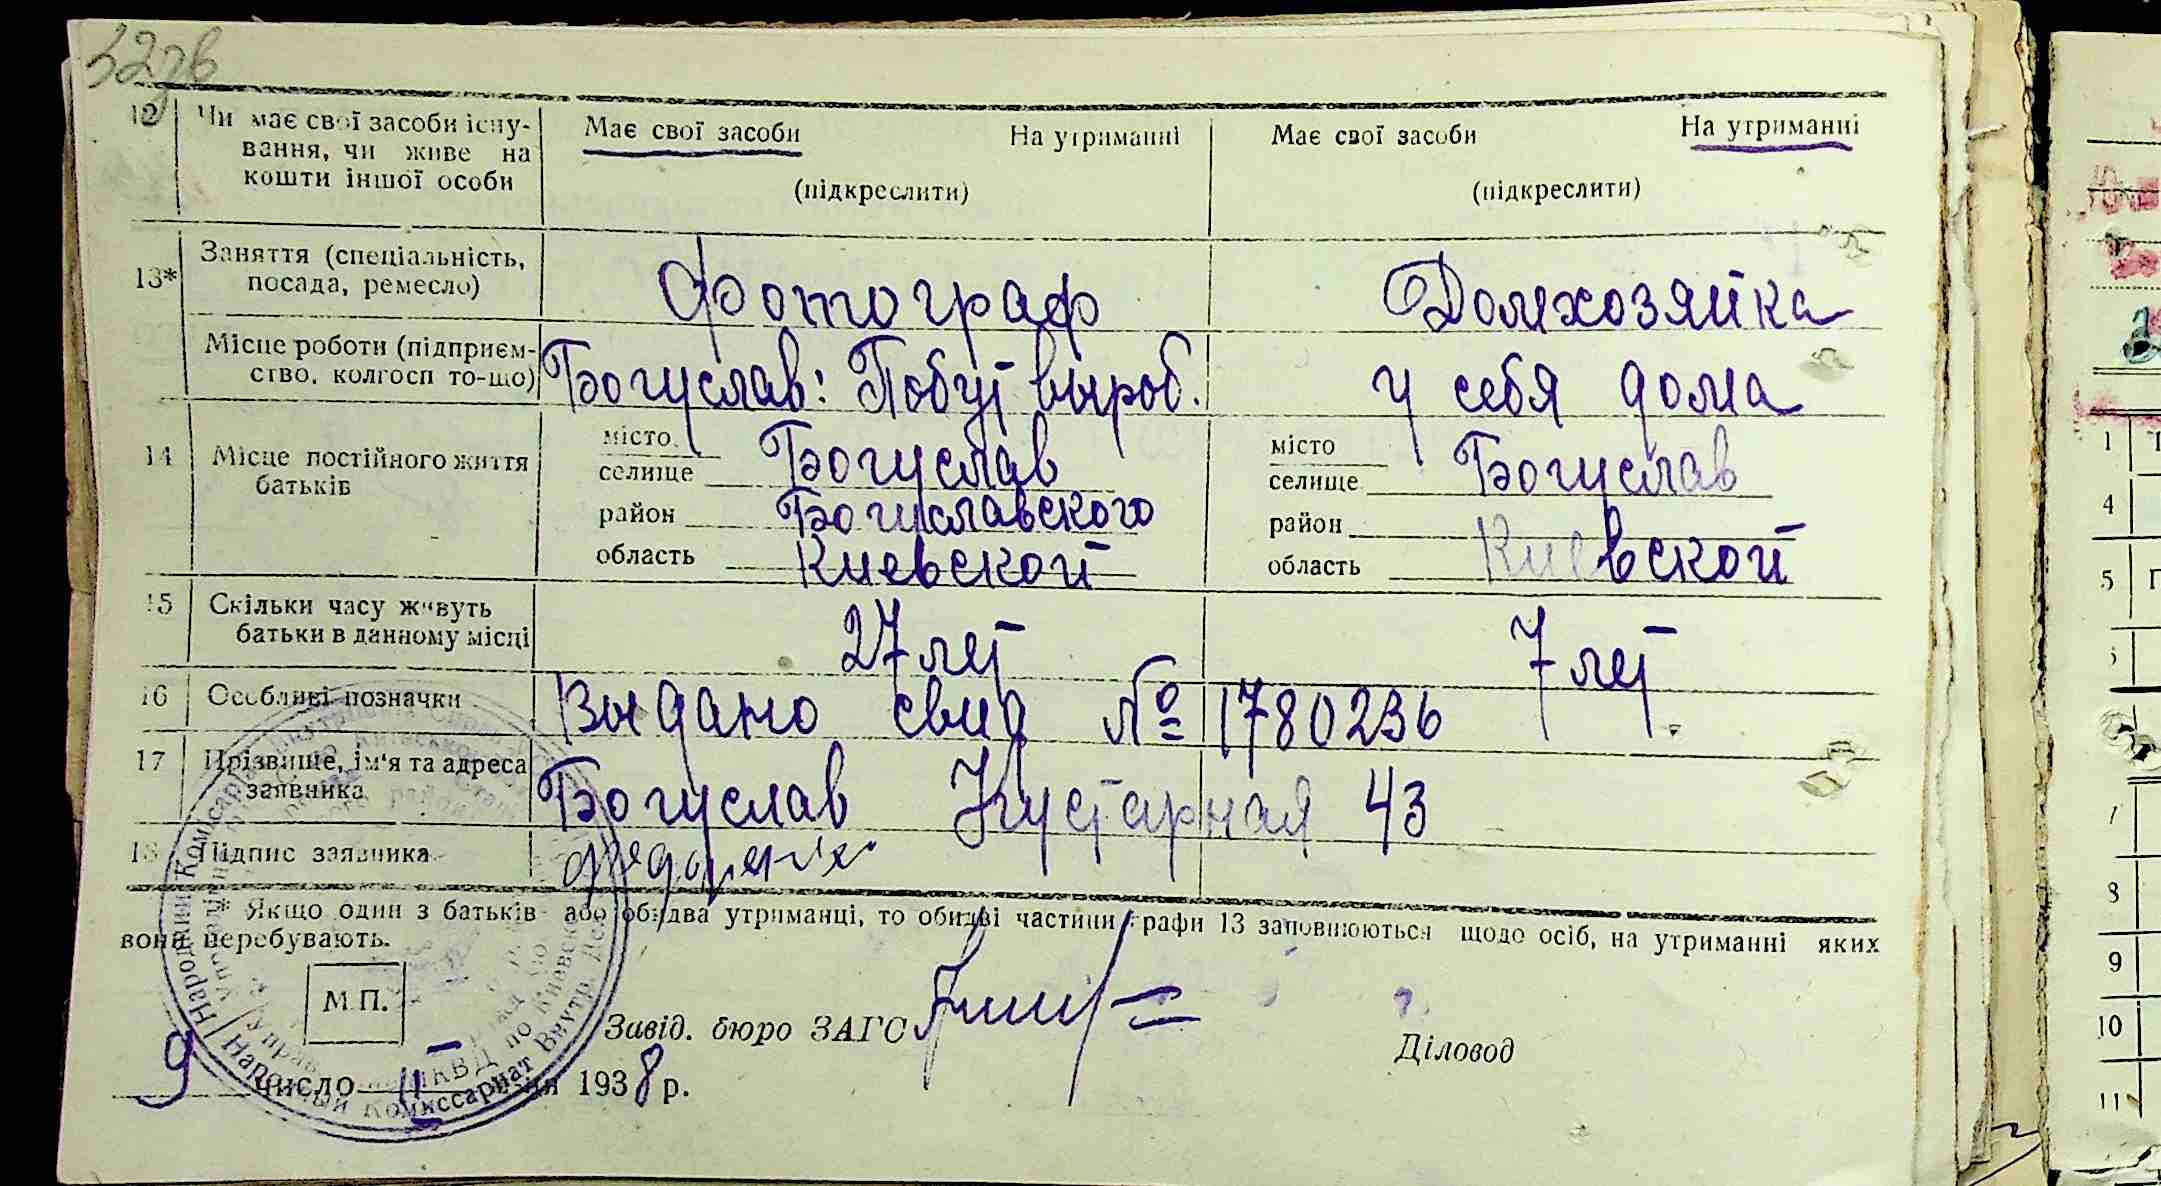 12 Чи має свої засоби існу- Має свої засоби На утриманні Має свої засоби На утриманні
вання, чи живе на
кошти іншої особи (підкреслити) (підкреслити)
13* Заняття (спеціальність,
посада, ремесло) Фотограф Домхозяйка
Місце роботи (підприєм-
ство, колгосп то-що) Богуслав: Побут вироб. у себя дома
14 Місце постійного життя
батьків
місто
селище Богуслав
район Богуславского
область Киевской
місто
селище Богуслав
район
область Киевской
15 Скільки часу живуть
батьки в данному місці 27 лет 7 лет
16 Особливі позначки Выдано свид № 1780236
17 Прізвище, ім'я та адреса
заявника Богуслав Кустарная 43
18 Підпис заявника
* Якщо один з батьків або обидва утриманці, то обидві частини графи 13 заповнюються щодо осіб, на утриманні яких
вони перебувають.
М.П.
Завід. бюро ЗАГС
Діловод
9 число II 1938 р.
Народный Комиссариат Внутр
НКВД по Киевск
1
4
5
7
8
9
10
11